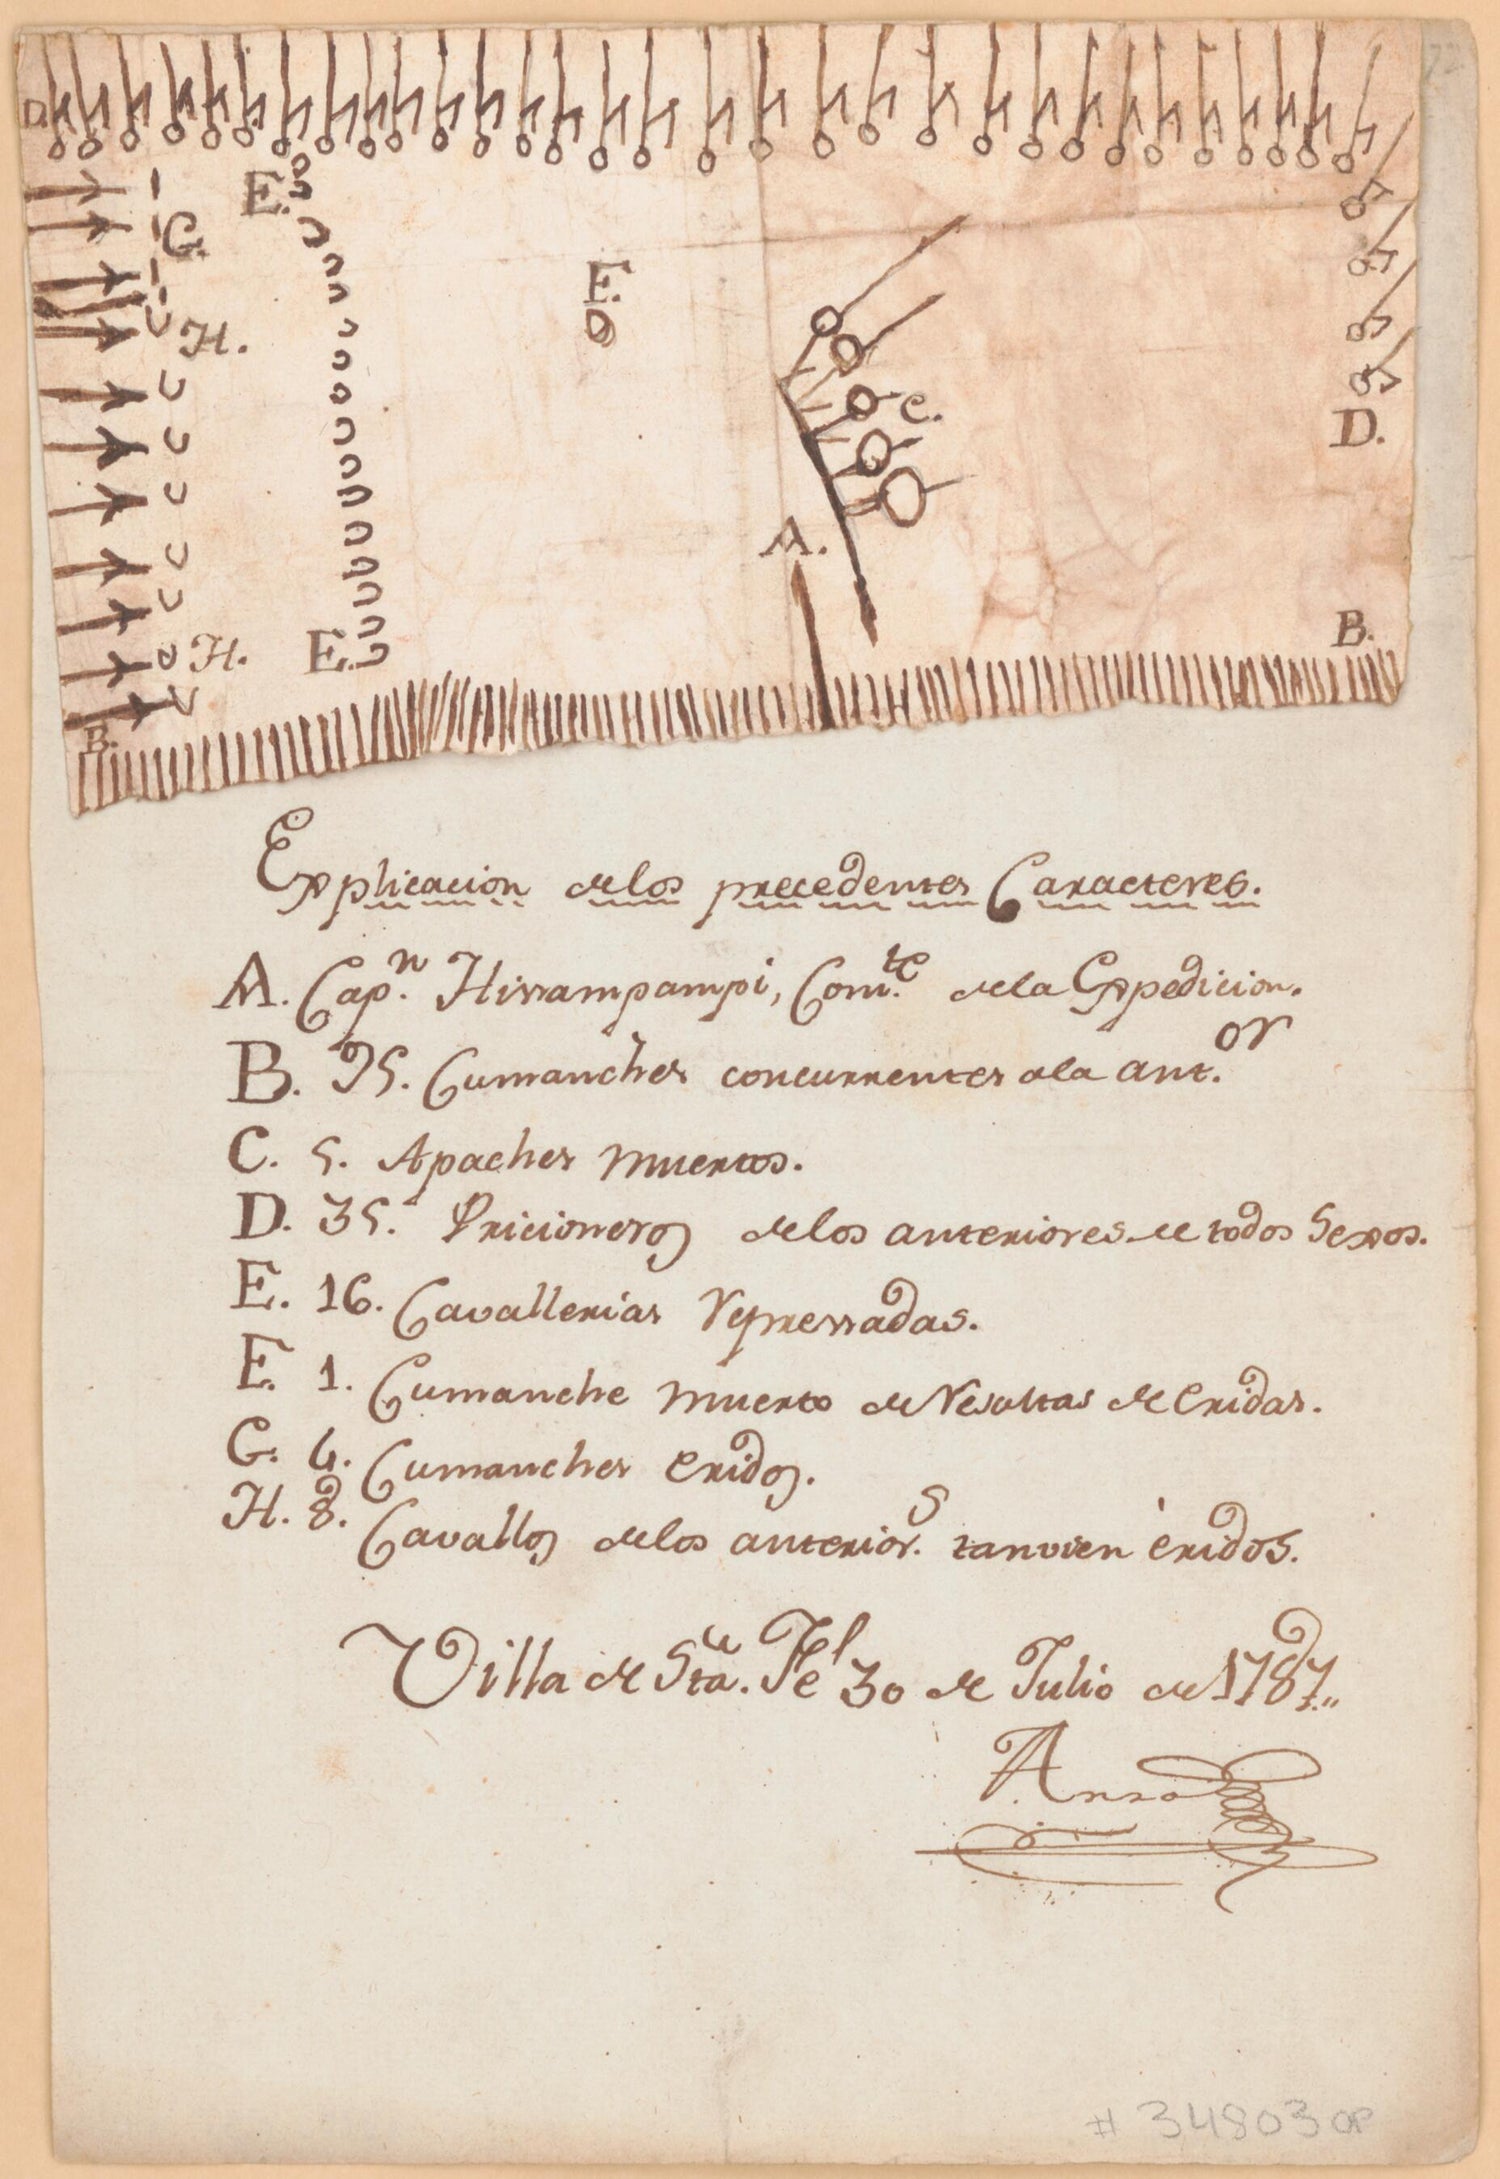 72
D.
E.
G.
E.
H.
C.
D.
A.
B.
H.
E.
B.
Explicacion delos precedentes Caracteres.
A. Cap.n Hissampampi, Com.te dela Expedicion.
B. 95. Cumanches concurrentes ala ant.or
C. 5. Apaches muertos.
D. 35. Pricioneros delos anteriores de todos Sexos.
E. 16. Cavallerias represadas.
E. 1. Cumanche muerto de resultas de eridas.
G. 4. Cumanches eridos.
H. 8. Cavallos delos anterior.s tanvien èridos.
Villa de Sta. Fe 30 de Julio de 1787.
Anza
# 34803 OP